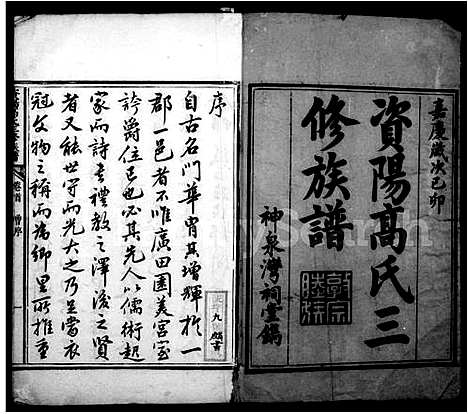 嘉慶歲次己卯
資陽高氏三
修族譜
神泉灣祠堂鐫
序
自古名門華胄其增輝於一
郡一邑者不唯廣田園美宮室
誇爵位已也必其先人以儒術起
家而詩書禮教之澤後之賢
者又能世守而光大之乃足當衣
冠文物之稱而為鄉里所推重
卷首
序